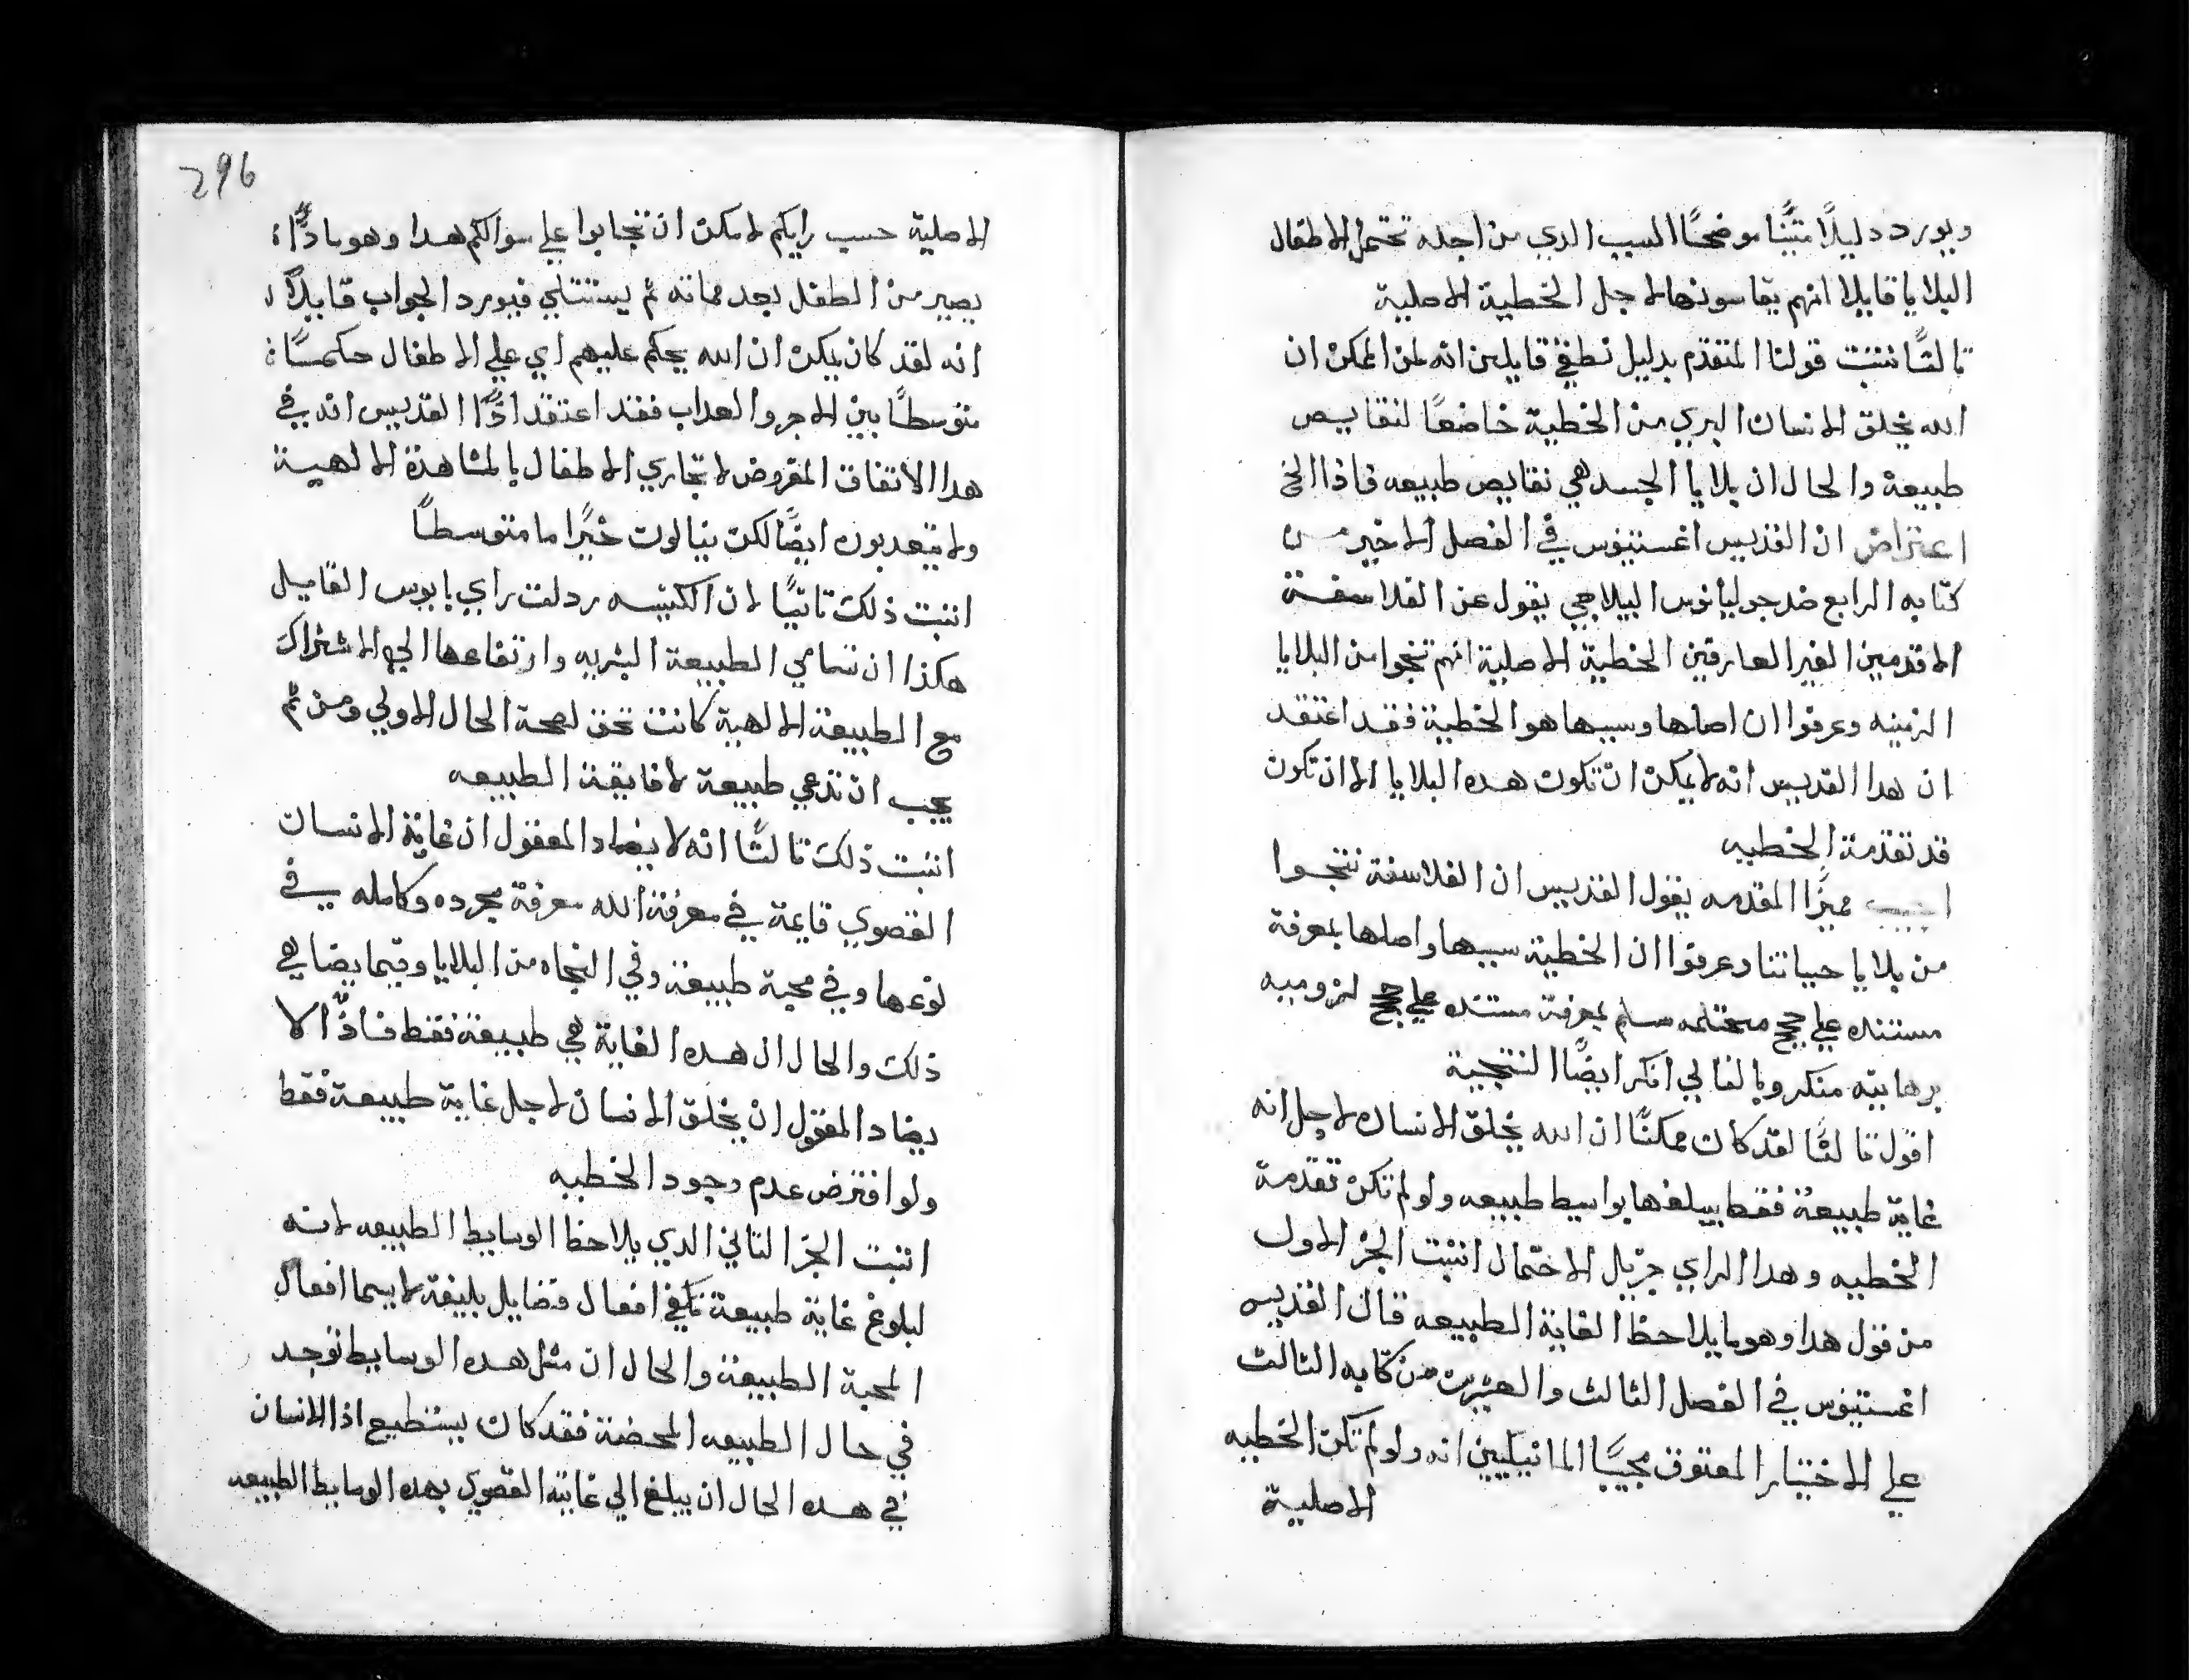 ويورد دليلًا متينًا موضحًا السبب الدي من اجله تحتمل الاطفال
البلايا قايلا انهم يقاسونها لاجل الخطية الاصلية
ثالثًا نثبت قولنا المتقدم بدليل نطقي قايلين انه لمن الممكن ان
الله يخلق الانسان البري من الخطية خاضعًا لنقايص
طبيعة والحال ان بلايا الجسد هي نقايص طبيعه فاذا الخ
اعتراض ان القديس اغستينوس في الفصل الاخير من
كتابه الرابع ضد جوليانوس البيلاجي يقول عن الفلاسفة
الاقدمين الغير العارفين الخطية الاصلية انهم نتجوا من البلايا
الزمنيه وعرفوا ان اصلها وسببها هو الخطية فقد اعتقد
ان هدا القديس انه لا يمكن ان تكون هده البلايا الا ان تكون
قد تقدمة الخطيه
اجيب مميزًا المقدمه يقول القديس ان الفلاسفة نتجوا
من بلايا حياتنا وعرفوا ان الخطية سببها واصلها بمعرفة
مستنده علي حجج محتمله مسلم بمعرفة مستنده علي حجج لزوميه
برهانيه منكر وبالتالي انكر ايضًا النتيجية
اقول ثالثًا لقد كان ممكنًا ان الله يخلق الانسان لاجل انه
غاية طبيعة فقط يبلغها بواسيط طبيعه ولو لم تكن تقدمة
الخطيه وهدا الراي جزيل الاحتمال اثبت الجز الاول
من قول هدا وهو ما يلاحظ الغاية الطبيعه قال القديس
اغستينوس في الفصل الثالث والعشرين من كتابه الثالث
علي الاختيار المعتوق مجيبًا المانيكيين انه ولو لم تكن الخطيه
الاصلية
296
الاصلية حسب رايكم لا يمكن ان تجابوا علي سوالكم هدا وهو مادًا
يصير من الطفل بعد مماته ثم يستتلي فيورد الجواب قايلًا
انه لقد كان يمكن ان الله يحكم عليهم اي علي الاطفال حكمًا
متوسطًا بين الاجر والعداب فقد اعتقد ادًا القديس انه في
هدا الاتفاق المفروض لا تجاري الاطفال بالمشاهدة الالهية
ولا يتعدبون ايضًا لكن ينالون خيرًا ما متوسطًا
اثبت ذلك ثانيًا لان الكنيسه ردلت راي بايوس القايل
هكذا ان تسامي الطبيعة البشريه وارتفاعها الي الاشتراك
مع الطبيعة الالهية كانت تحق لصحة الحال الاولي ومن ثم
يجب ان تدعي طبيعة لا فايقة الطبيعه
اثبت ذلك ثالثًا انه لا يضاد المعقول ان غاية الانسان
القصوي قايمة في معرفة الله معرفة مجرده وكامله في
نوعها وفي محبة طبيعة وفي النجاه من البلايا وفيما يضاهي
ذلك والحال ان هده الغاية هي طبيعة فقط فاذًا لا
يضاد المعقول ان يخلق الانسان لاجل غاية طبيعة فقط
ولو افترض عدم وجود الخطيه
اثبت الجز الثاني الدي يلاحظ الوسايط الطبيعه لانه
لبلوغ غاية طبيعة تكفي افعال فضايل بليغة لا سيما افعال
المحبة الطبيعة والحال ان مثل هده الوسايط توجد
في حال الطبيعه المحضة فقد كان يستطيع اذا الانسان
في هده الحال ان يبلغ الي غايته القصوي بهده الوسايط الطبيعه